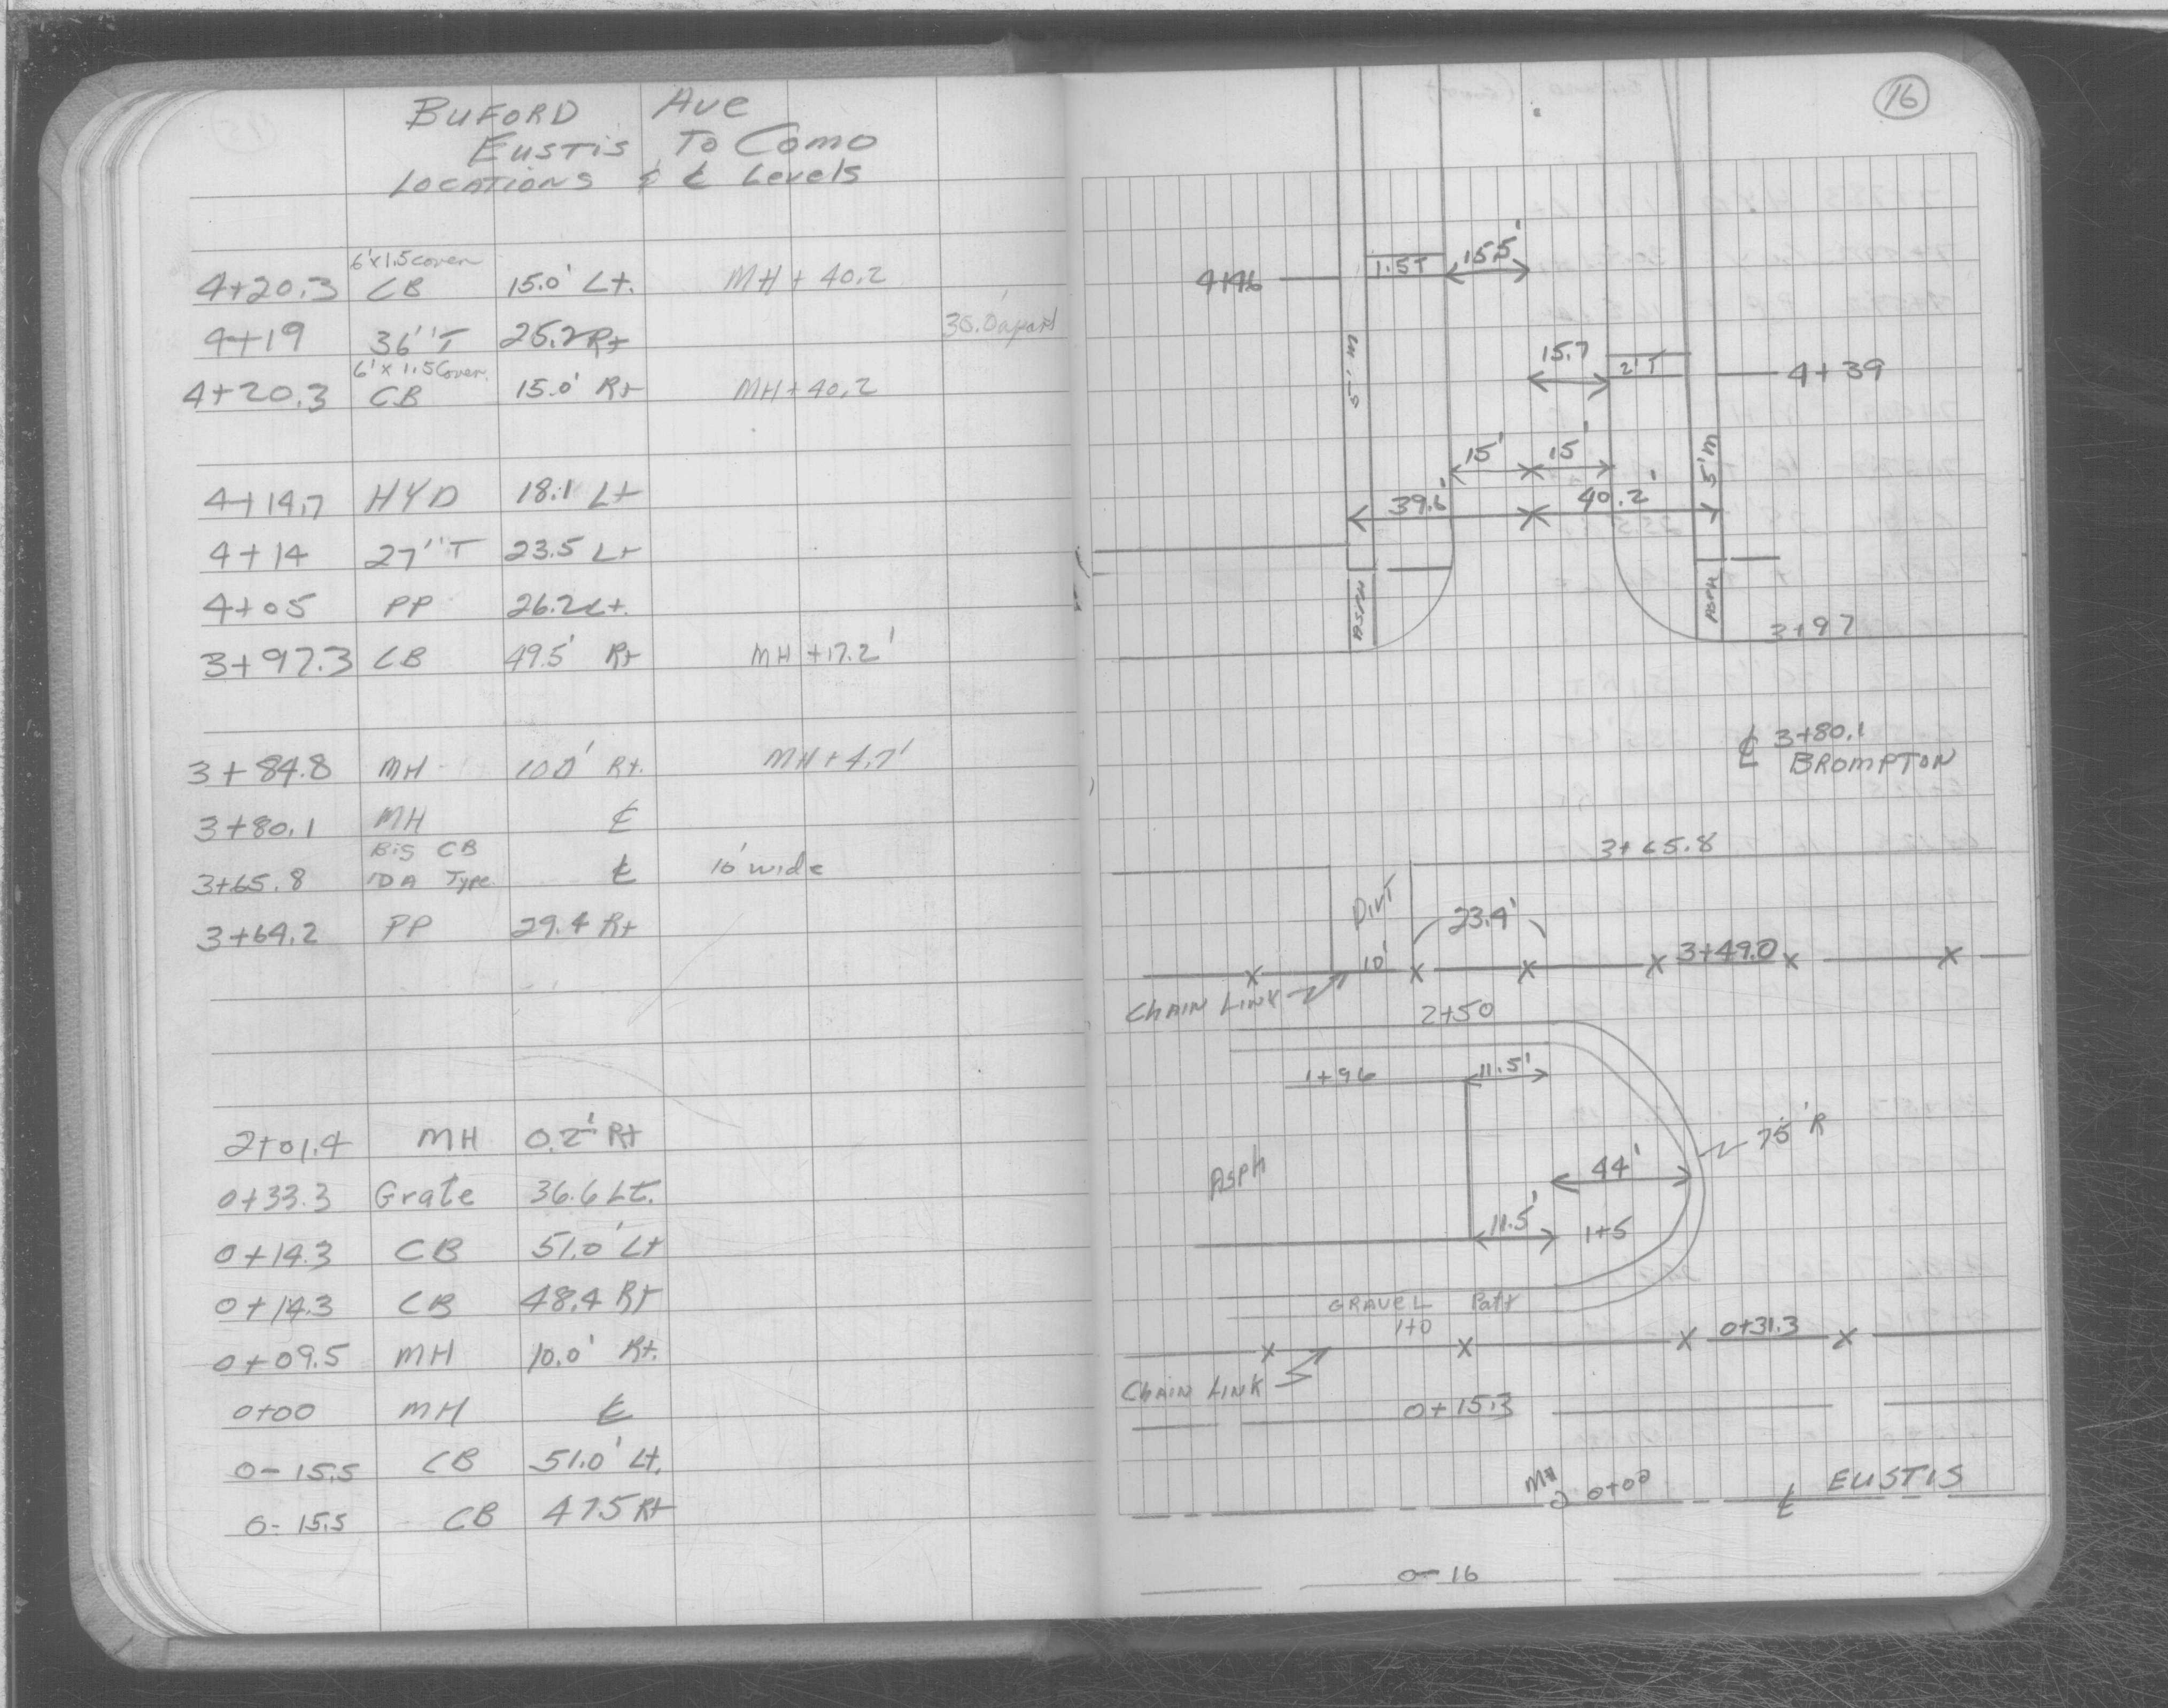 BUFORD AVE
EUSTIS TO COMO
LOCATIONS & ℄ Levels
6'x1.5 cover
4+20.3 CB 15.0' Lt. MH + 40.2
30.0 apart
4+19 36"T 25.2 Rt
6'x1.5 Cover
4+20.3 CB 15.0' Rt MH+40.2
4+14.7 HYD 18.1 Lt
4+14 27"T 23.5 Lt
4+05 PP 26.2 Lt.
3+97.3 CB 49.5' Rt MH +17.2'
3+84.8 MH 10.0' Rt. MH+4.7'
3+80.1 MH ℄
Big CB
3+65.8 IDA Type ℄ 10' wide
3+64.2 PP 29.4 Rt
2+01.4 MH 0.2' Rt
0+33.3 Grate 36.6 Lt.
0+14.3 CB 51.0' Lt
0+14.3 CB 48.4 Rt
0+09.5 MH 10.0' Rt.
0+00 MH ℄
0-15.5 CB 51.0' Lt.
0-15.5 CB 47.5 Rt
16
4+46 1.5T 15.5'
5' M
15.7 2'T 4+39
15' 15'
5'M
39.6' 40.2'
ASPH ASPH
3+97
℄ 3+80.1
BROMPTON
3+65.8
Dirt
23.4'
10' 3+49.0
CHAIN LINK
2+50
1+96 11.5'
75'R
Asph 44'
11.5' 1+5
GRAVEL Path
1+0
0+31.3
CHAIN LINK
0+15.3
MH 0+00 ℄ EUSTIS
0-16